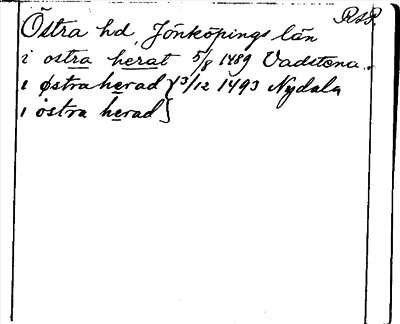 RAP.
Östra hd, Jönköpings län
i ostra herat 5/8 1489 Vadstena.
i østra herad } 3/12 1493 Nydala
i östra herad